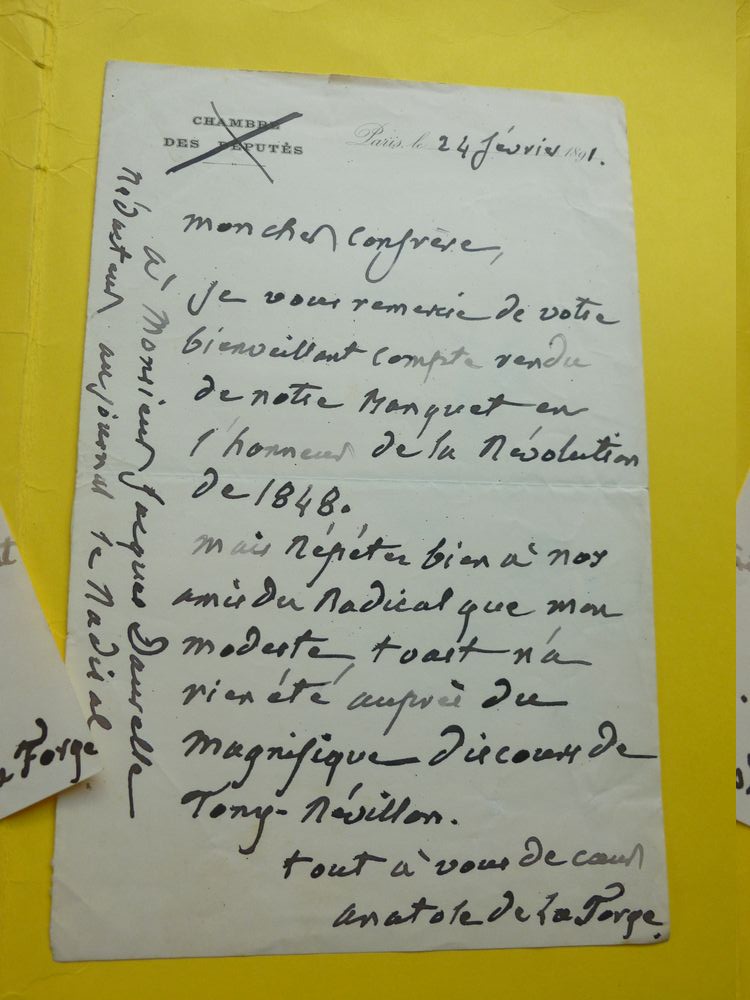 CHAMBRE
DES DÉPUTÉS
Paris, le 24 février 1891.
mon cher confrère,
je vous remercie de votre
bienveillant compte rendu
de notre Banquet en
l'honneur de la Révolution
de 1848.
mais Répétez bien à nos
amis du Radical que mon
modeste toast n'a
rien été auprès du
magnifique discours de
Tony-Révillon.
tout à vous de cœur
anatole de La Forge.
à Monsieur Jacques Daurelle
Rédacteur au journal le Radical
Forge